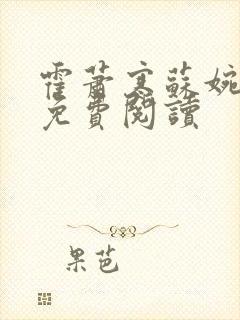 霍蕭寒蘇婉
免費閱讀
果芭